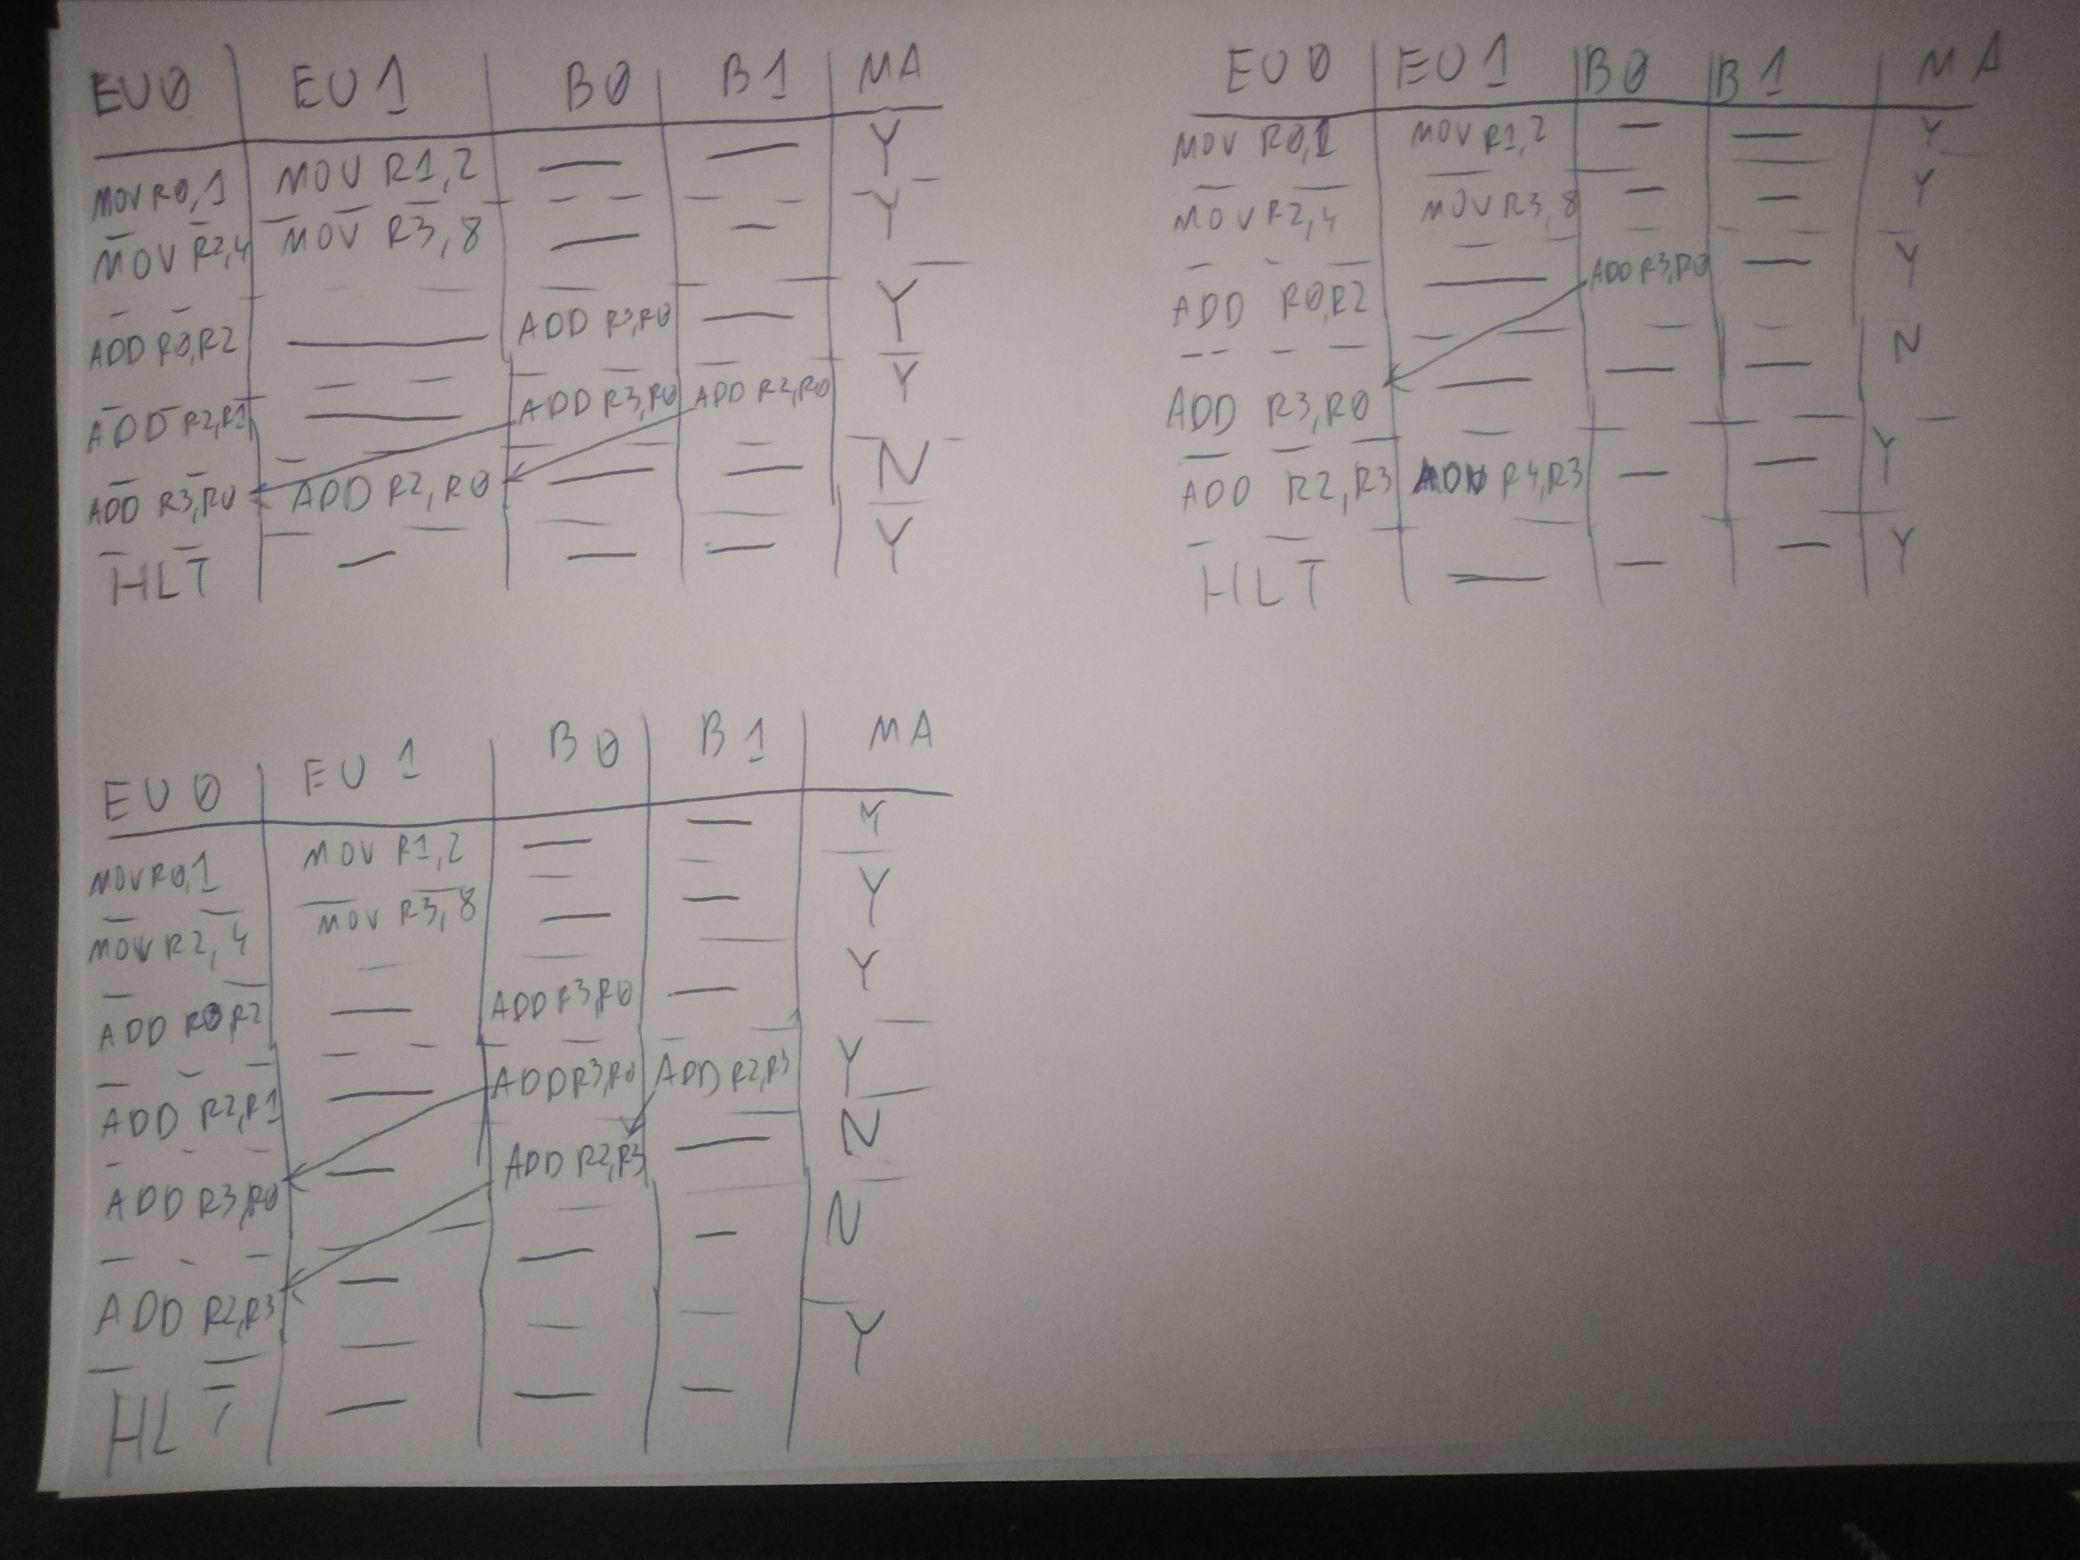 EU0 EU1 B0 B1 MA
MOV R0,1 MOV R1,2 — — Y
MOV R2,4 MOV R3,8 — — Y
ADD R0,R2 — ADD R3,R0 — Y
ADD R2,R1 — ADD R3,R0 ADD R2,R0 Y
ADD R3,R0 ADD R2,R0 — — N
HLT — — — Y
EU0 EU1 B0 B1 MA
MOV R0,1 MOV R1,2 — — Y
MOV R2,4 MOV R3,8 — — Y
ADD R0,R2 — ADD R3,R0 — Y
ADD R3,R0 — — — N
ADD R2,R3 R4,R3 — — Y
HLT — — — Y
EU0 EU1 B0 B1 MA
MOV R0,1 MOV R1,2 — — Y
MOV R2,4 MOV R3,8 — — Y
ADD R0,R2 — ADD R3,R0 — Y
ADD R2,R1 — ADD R3,R0 ADD R2,R3 Y
ADD R3,R0 — ADD R2,R3 — N
ADD R2,R3 — — — N
HLT — — — Y